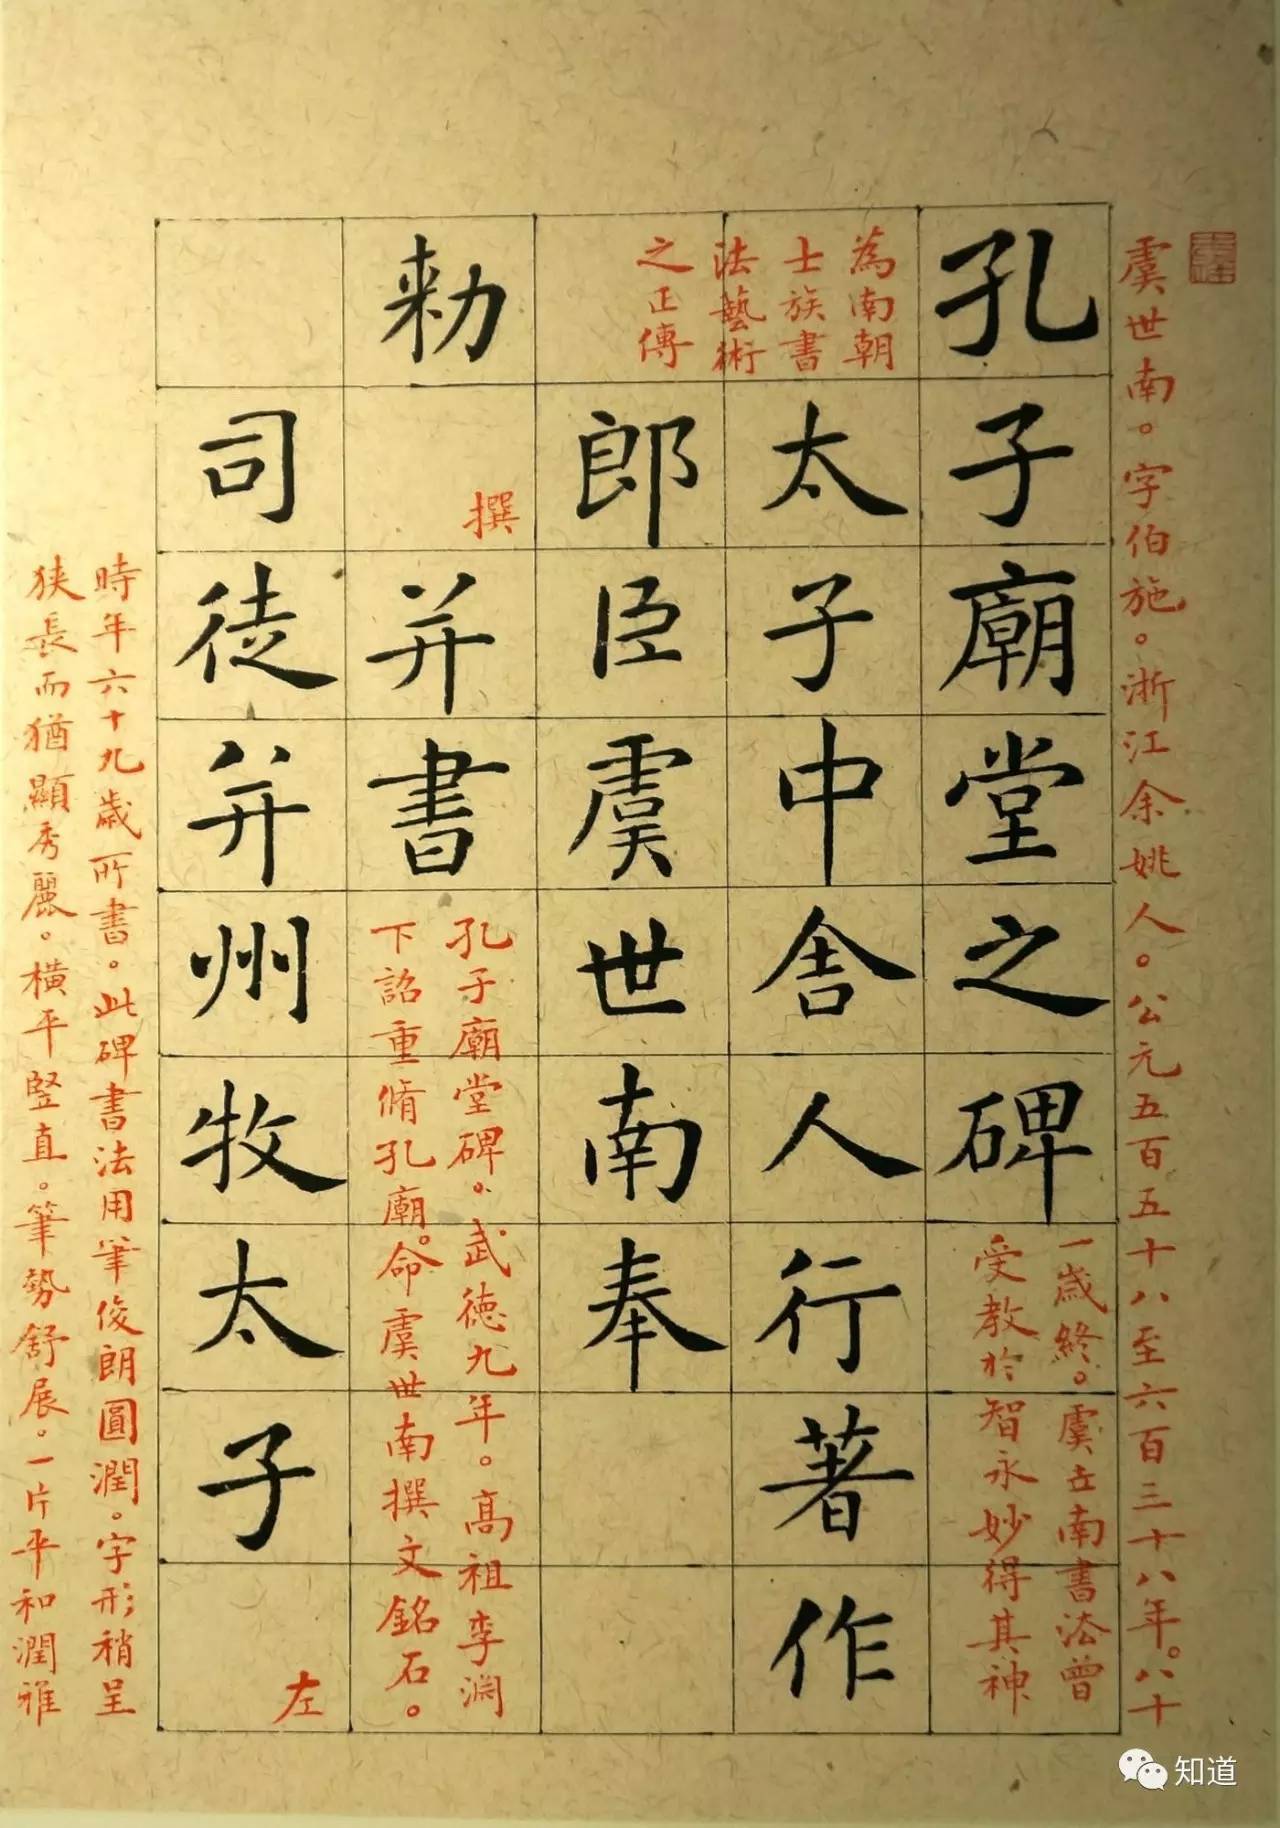 孔子廟堂之碑
太子中舎人行著作
郎臣虞世南奉
勑
撰
并書
司徒并州牧太子
左
虞世南。字伯施。浙江余姚人。公元五百五十八至六百三十八年。八十
一歲終。虞世南書法曾
受教於智永妙得其神
為南朝
士族書
法藝術
之正傳
孔子廟堂碑。武德九年。高祖李淵
下詔重脩孔廟。命虞世南撰文銘石。
時年六十九歲所書。此碑書法用筆俊朗圓潤。字形稍呈
狹長而猶顯秀麗。橫平竪直。筆勢舒展。一片平和潤雅
知道